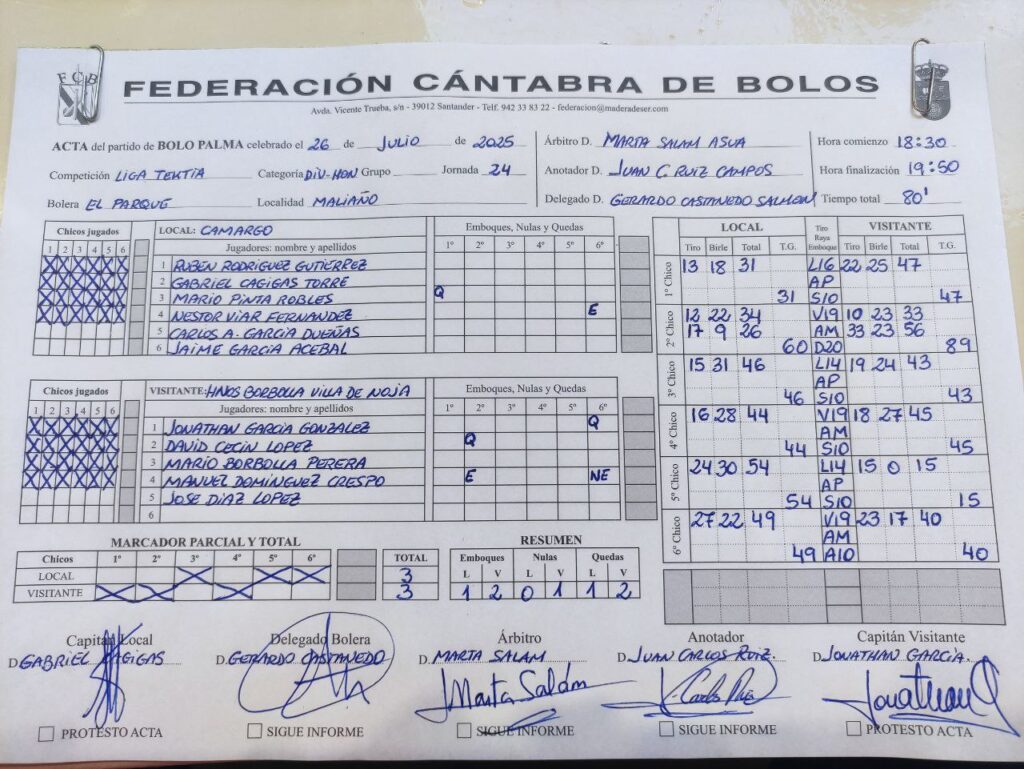 FCB
FEDERACIÓN CÁNTABRA DE BOLOS
Avda. Vicente Trueba, s/n - 39012 Santander - Telf. 942 33 83 22 - federacion@maderadeser.com
ACTA del partido de BOLO PALMA celebrado el 26 de JULIO de 2025
Competición LIGA TEKTIA Categoría DIV-HON Grupo Jornada 24
Bolera EL PARQUE Localidad MALIAÑO
Árbitro D. MARTA SALAM ASUA
Anotador D. JUAN C. RUIZ CAMPOS
Delegado D. GERARDO CASTANEDO SALMON
Hora comienzo 18:30
Hora finalización 19:50
Tiempo total 80'
Chicos jugados
1 2 3 4 5 6
X X X X X X
X X X X X X
X X X X X X
X X X X X X
LOCAL: CAMARGO
Jugadores: nombre y apellidos
Emboques, Nulas y Quedas
1º 2º 3º 4º 5º 6º
1 RUBEN RODRIGUEZ GUTIERREZ
2 GABRIEL CAGIGAS TORRE
3 MARIO PINTA ROBLES Q
4 NESTOR VIAR FERNANDEZ E
5 CARLOS A. GARCIA DUEÑAS
6 JAIME GARCIA ACEBAL
Chicos jugados
1 2 3 4 5 6
X X X X X X
X X X X X X
X X X X X X
X X X X X X
VISITANTE: HNOS BORBOLLA VILLA DE NOJA
Jugadores: nombre y apellidos
Emboques, Nulas y Quedas
1º 2º 3º 4º 5º 6º
1 JONATHAN GARCIA GONZALEZ Q
2 DAVID CECIN LOPEZ Q
3 MARIO BORBOLLA PERERA
4 MANUEL DOMINGUEZ CRESPO E NE
5 JOSE DIAZ LOPEZ
6
LOCAL Tiro Raya Emboque VISITANTE
Tiro Birle Total T.G. Tiro Birle Total T.G.
1º Chico
13 18 31 L16 22 25 47
AP
31 S10 47
2º Chico
12 22 34 V19 10 23 33
17 9 26 AM 33 23 56
60 D20 89
3º Chico
15 31 46 L14 19 24 43
AP
46 S10 43
4º Chico
16 28 44 V19 18 27 45
AM
44 S10 45
5º Chico
24 30 54 L14 15 0 15
AP
54 S10 15
6º Chico
27 22 49 V19 23 17 40
AM
49 A10 40
MARCADOR PARCIAL Y TOTAL
Chicos 1º 2º 3º 4º 5º 6º TOTAL
LOCAL X X X 3
VISITANTE X X X 3
RESUMEN
Emboques Nulas Quedas
L V L V L V
1 2 0 1 1 2
Capitán Local
D. GABRIEL CAGIGAS
PROTESTO ACTA
Delegado Bolera
D. GERARDO CASTANEDO
SIGUE INFORME
Árbitro
D. MARTA SALAM
Marta Salám
SIGUE INFORME
Anotador
D. JUAN CARLOS RUIZ.
J. Carlos Ruiz
SIGUE INFORME
Capitán Visitante
D. JONATHAN GARCÍA.
Jonathan G
PROTESTO ACTA